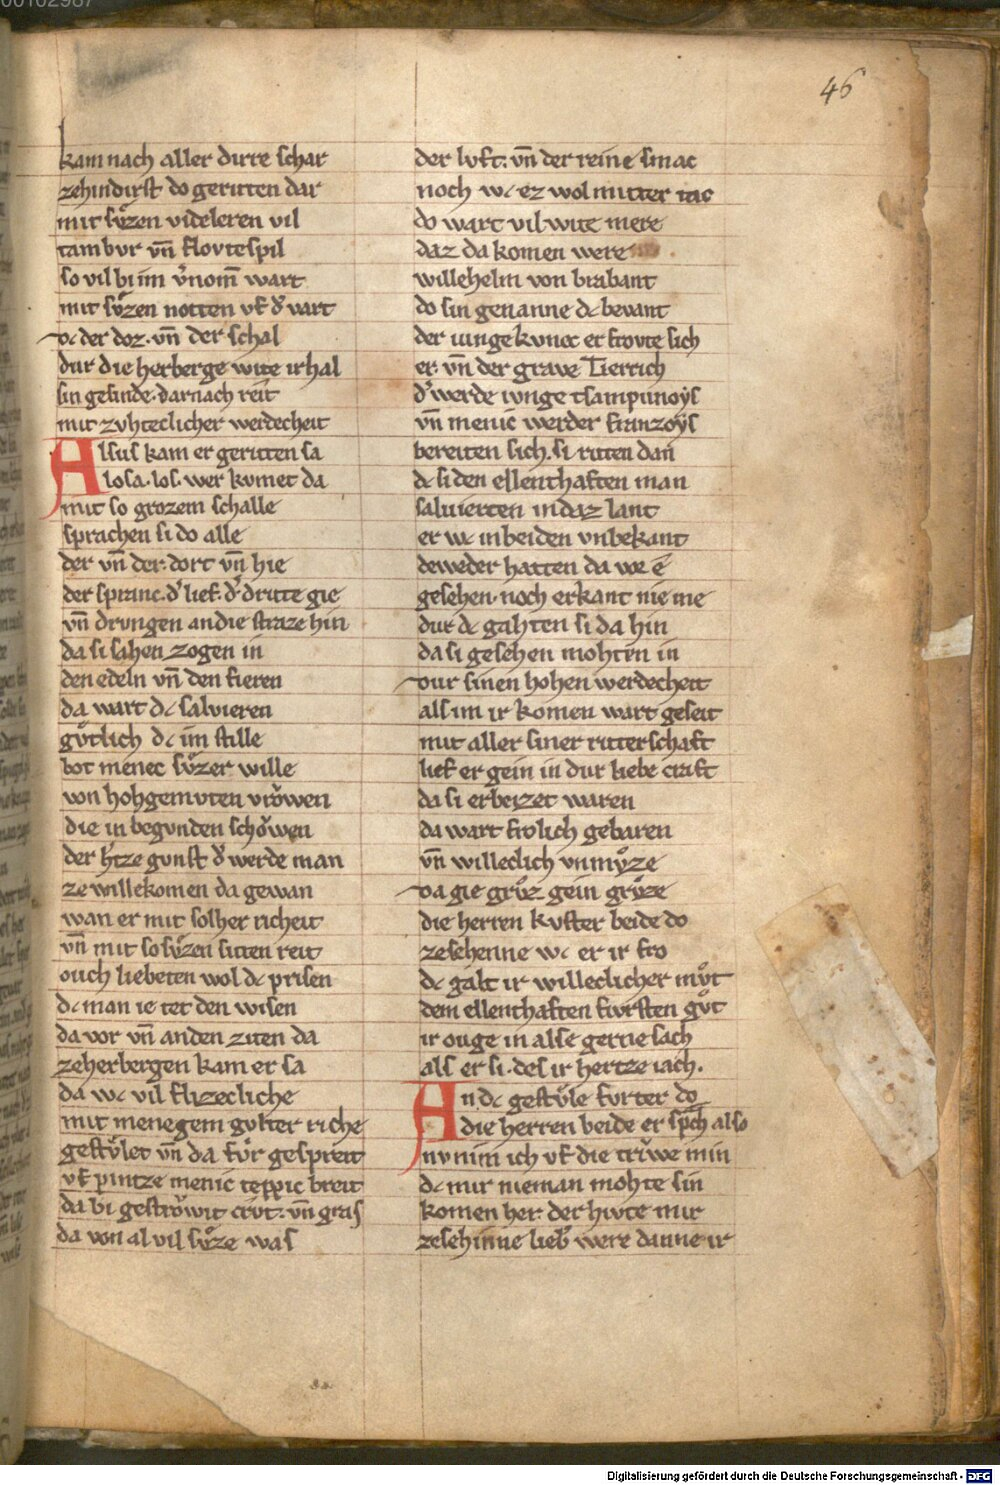 00102987
46
kam nach aller dirre schar
zehindirst do geritten dar
mit sůzen videleren vil
tambvr vn̄ floytespil
so vil bi im v̾nom̄ wart
mit sůzen notten vf d̾ vart
dc der doz. vn̄ der schal
dur die herberge wite irhal
sin gesinde. darnach reit
mit zvhteclicher werdecheit
Alsus kam er geritten sa
losa. los. wer kvmet da
mit so grozem schalle
sprachen si do alle
der vn̄ der. dort vn̄ hie
der spranc. d̾ lief. d̾ dritte gie
vn̄ drvngen an die straze hin
da si sahen zogen in
den edeln vn̄ den fieren
da wart dc salvieren
gůtlich dc im stille
bot menec sůzer wille
von hohgemvten vrowen
die in begvnden schowen
der h̾tze gvnst d̾ werde man
ze willekomen da gewan
wan er mit solher richeit
vn̄ mit so sůzen siten reit
ouch liebeten wol dc prisen
dc man ie tet den wisen
da vor vn̄ an den ziten da
zeherbergen kam er sa
da wc vil flizecliche
mit menegem gvlter riche
gestůlet vn̄ da fůr gespreit
vf pintze menic teppic breit
da bi gestrowit crvt. vn̄ gras
da von al vil sůze was
der lvft. vn̄ der reine smac
noch wc ez wol mitter tac
do wart vil wite mere
daz da komen were
willehelm von brabant
do sin genanne dc bevant
der iunge kvnec er frovte sich
er. vn̄ der grave Tierrich
d̾ werde ivnge tsampunoys
vn̄ menic werder franzoys
bereiten sich. si ritten dan
dc si den ellenthaften man
salvierten in daz lant
er wc in beiden vnbekant
deweder hatten da vor e
gesehen. noch erkant nie me
dur dc gahten si da hin
da si gesehen mohten in
dur sinen hohen werdecheit
als im ir komen wart geseit
mit aller siner ritterschaft
lief er gein in dur liebe craft
da si erbeizet waren
da wart frolich gebaren
vn̄ willeclich vnmůze
da gie grůz gein grůze
die herren kvster beide do
zesehenne wc er ir fro
dc galt ir willeclicher můt
dem ellenthaften fvrsten gůt
ir ouge in alse gerne sach
als er si. des ir hertze iach.
An dc gestůle fvrter do
die herren beide er sp̄ch also
nv nim ich vf die trůwe min
dc mir nieman mohte sin
komen her. der hivte mir
zesehinne lieb̾ were danne ir
Digitalisierung gefördert durch die Deutsche Forschungsgemeinschaft - DFG